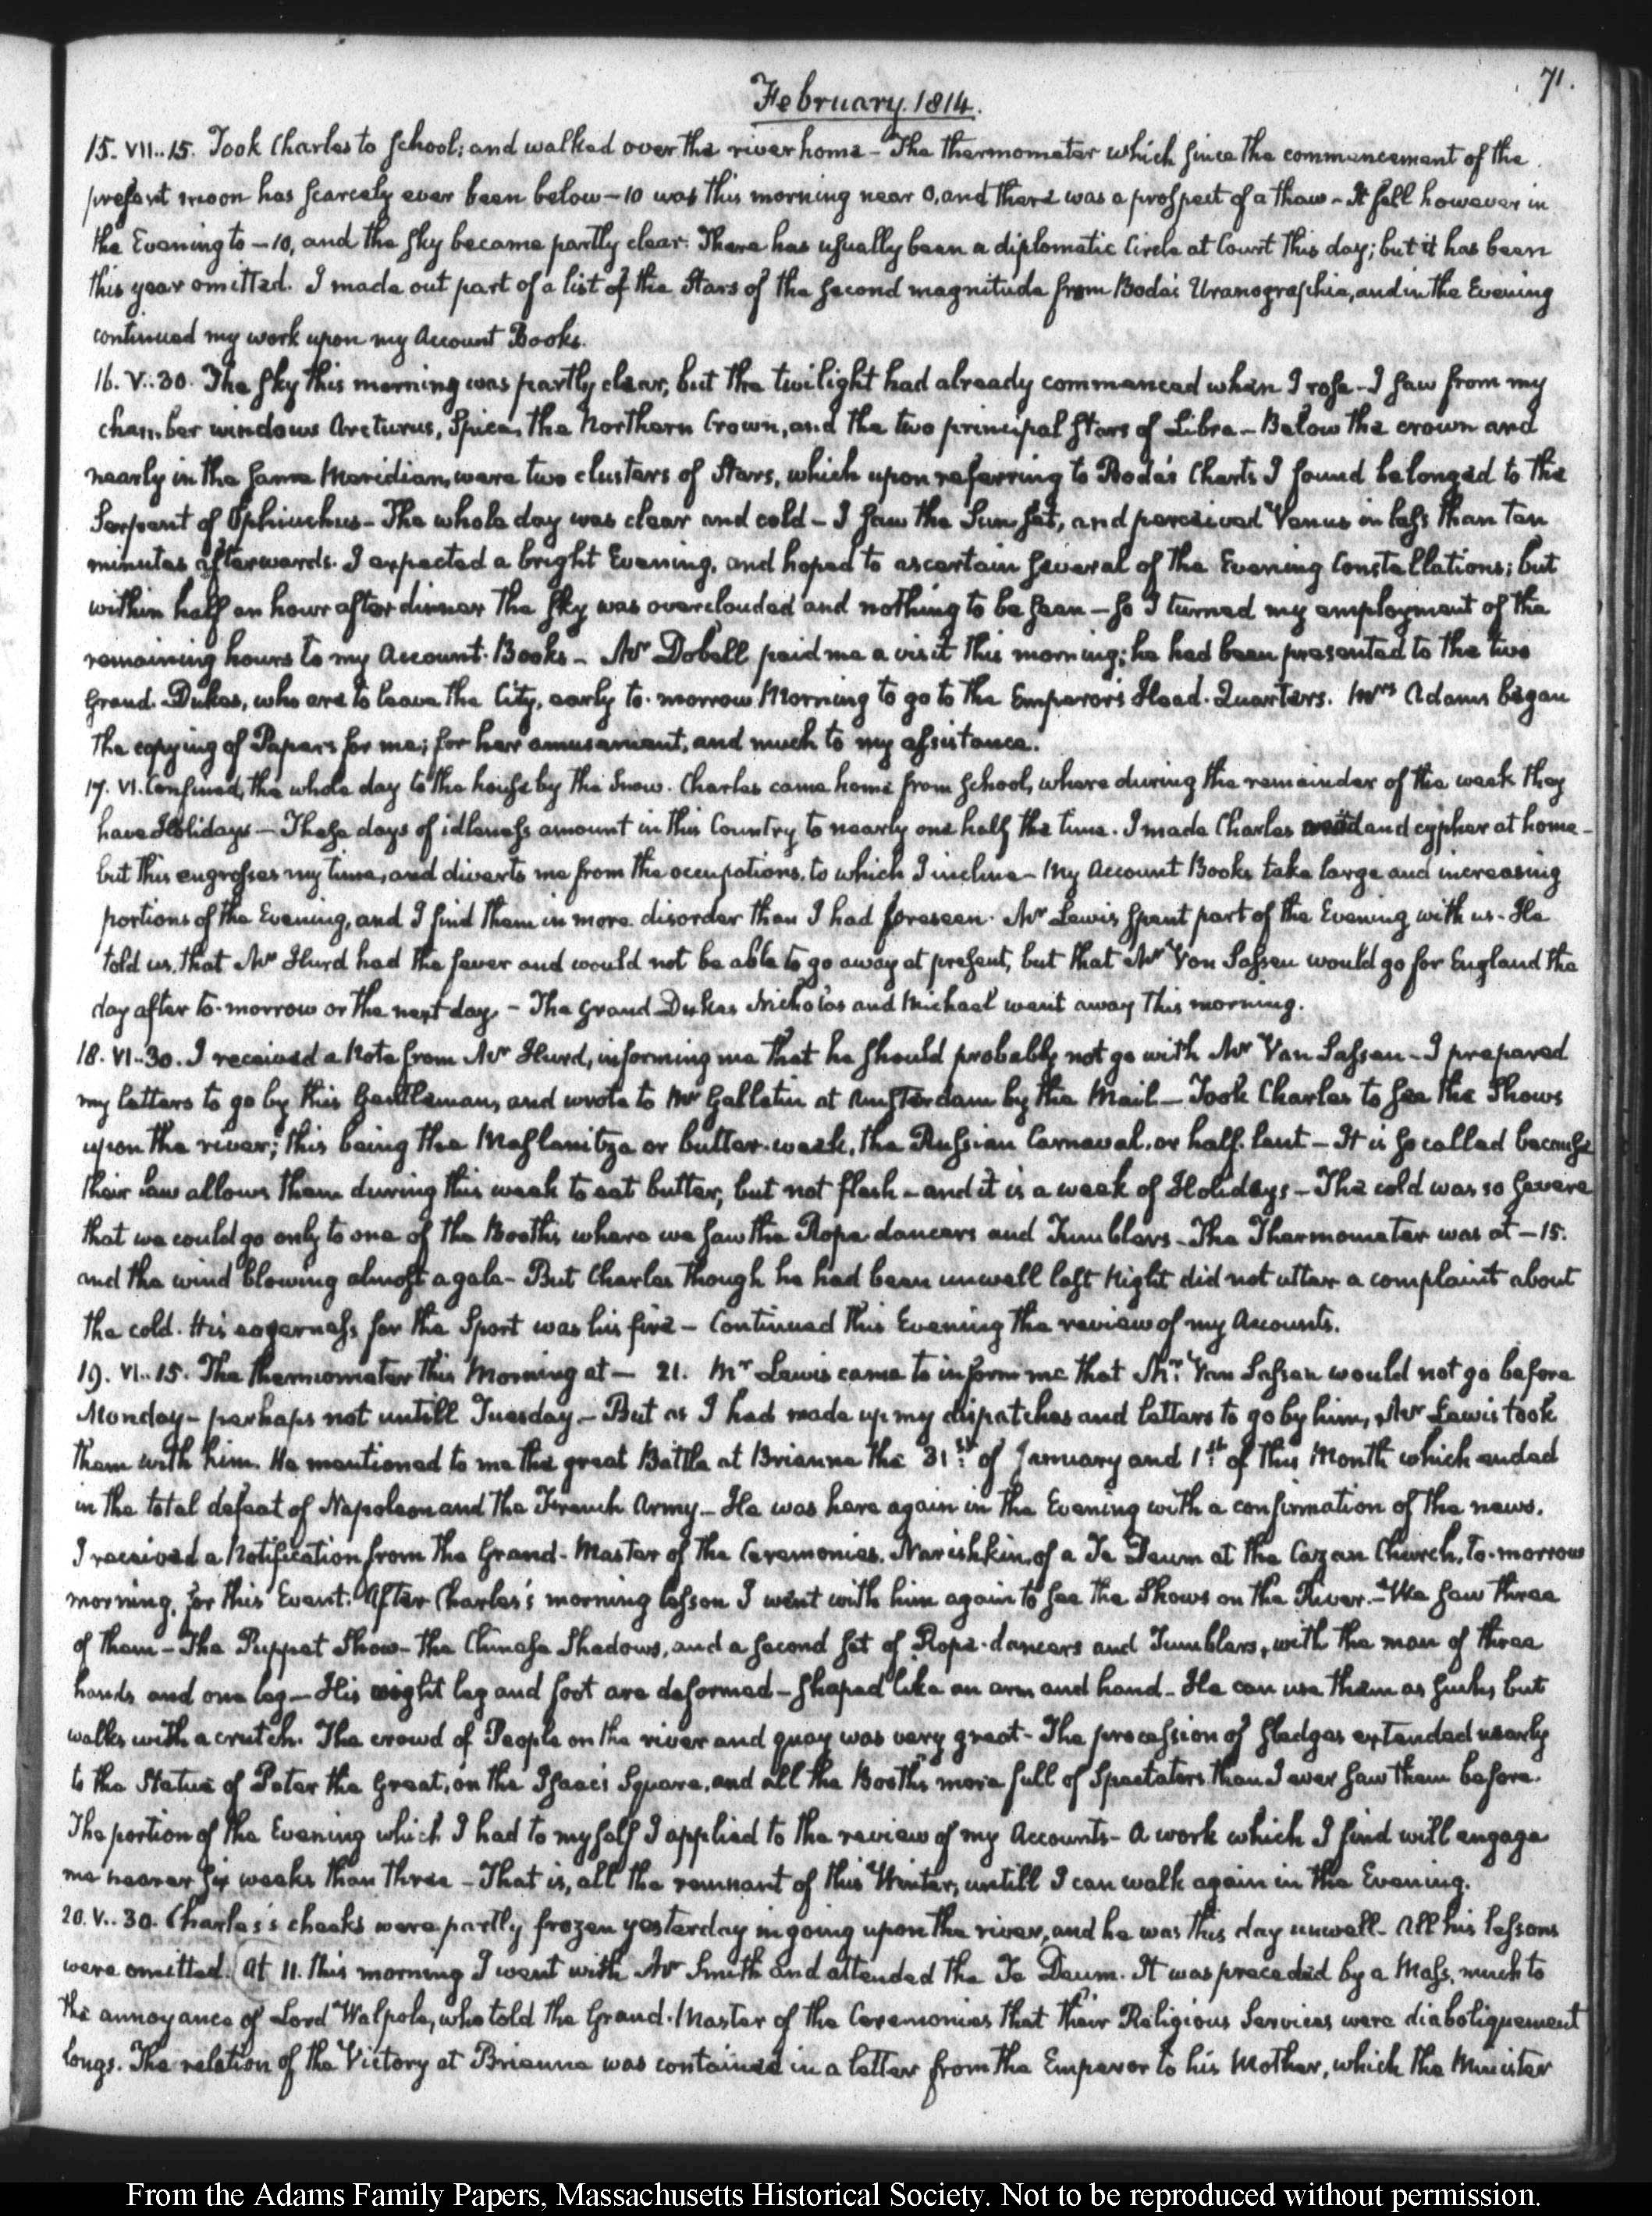 71.
February. 1814.
15. VII..15. Took Charles to School; and walked over the river home - The thermometer which since the commencement of the
present moon has scarcely ever been below -10 was this morning near 0, and there was a prospect of a thaw - It fell however in
the Evening to -10, and the sky became partly clear. There has usually been a diplomatic Circle at Court this day; but it has been
this year omitted. I made out part of a list of the Stars of the second magnitude from Bode's Uranographia, and in the Evening
continued my work upon my Account Books.
16. V..30. The sky this morning was partly clear, but the twilight had already commenced when I rose - I saw from my
chamber windows Arcturus, Spica, the Northern Crown, and the two principal stars of Libra - Below the crown and
nearly in the same Meridian, were two clusters of Stars, which upon referring to Bode's Charts I found belonged to the
Serpent of Ophiuchus - The whole day was clear and cold - I saw the Sun set, and perceived Venus in less than ten
minutes afterwards. I expected a bright Evening, and hoped to ascertain several of the Evening Constellations; but
within half an hour after dinner the sky was overclouded and nothing to be seen - so I turned my employment of the
remaining hours to my Account-Books - Mr Dobell paid me a visit this morning; he had been presented to the two
Grand-Dukes, who are to leave the City, early to-morrow Morning to go to the Emperor's Head-Quarters. Mrs Adams began
the copying of Papers for me; for her amusement, and much to my assistance.
17. VI. Confined, the whole day to the house by the Snow. Charles came home from School, where during the remainder of the week they
have Holidays - These days of idleness amount in this Country to nearly one half the time. I made Charles read and cypher at home -
but this engrosses my time, and diverts me from the occupations, to which I incline - My Account Books take large and increasing
portions of the Evening, and I find them in more disorder than I had foreseen. Mr Lewis spent part of the Evening with us - He
told us, that Mr Hurd had the fever and would not be able to go away at present, but that Mr Van Sassen would go for England the
day after to-morrow or the next day. - The Grand-Dukes Nicholas and Michael went away this morning.
18. VI..30. I received a Note from Mr Hurd, informing me that he should probably not go with Mr Van Sassen - I prepared
my letters to go by this Gentleman, and wrote to Mr Gallatin at Amsterdam by the Mail - Took Charles to see the Shows
upon the river; this being the Maslanitza or butter-week, the Russian Carnaval, or half-lent - It is so called because
their law allows them during this week to eat butter, but not flesh - and it is a week of Holidays - The cold was so severe
that we could go only to one of the Booths where we saw the Rope-dancers and Tumblers - The Thermometer was at -15.
and the wind blowing almost a gale - But Charles though he had been unwell last Night did not utter a complaint about
the cold. His eagerness for the Sport was his fire - Continued this Evening the review of my Accounts.
19. VI..15. The thermometer this Morning at - 21. Mr Lewis came to inform me that Mr. Van Sassen would not go before
Monday - perhaps not untill Tuesday - But as I had made up my dispatches and letters to go by him, Mr Lewis took
them with him. He mentioned to me the great Battle at Brienne the 31st of January and 1st of this Month which ended
in the total defeat of Napoleon and the French Army - He was here again in the Evening with a confirmation of the news.
I received a Notification from the Grand-Master of the Ceremonies, Narishkin, of a Te Deum at the Cazan Church, to-morrow
morning, for this Event. After Charles's morning lesson I went with him again to see the Shows on the River. - We saw three
of them - The Puppet Show - the Chinese Shadows, and a second set of Rope-dancers and Tumblers, with the man of three
hands and one leg - His right leg and foot are deformed - shaped like an arm and hand - He can use them as such, but
walks with a crutch. The crowd of People on the river and quay was very great - The procession of sledges extended nearly
to the Statue of Peter the Great, on the Isaac's Square, and all the Booths more full of Spectators than I ever saw them before.
The portion of the Evening which I had to myself I applied to the review of my Accounts - A work which I find will engage
me nearer six weeks than three - That is, all the remnant of this Winter, untill I can walk again in the Evening.
20. V..30. Charles's cheeks were partly frozen yesterday in going upon the river, and he was this day unwell - All his lessons
were omitted. At 11. this morning I went with Mr Smith and attended the Te Deum. It was preceded by a Mass, much to
the annoyance of Lord Walpole, who told the Grand-Master of the Ceremonies that their Religious Services were diaboliquement
longs. The relation of the Victory at Brienne was contained in a letter from the Emperor to his Mother, which the Minister
From the Adams Family Papers, Massachusetts Historical Society. Not to be reproduced without permission.